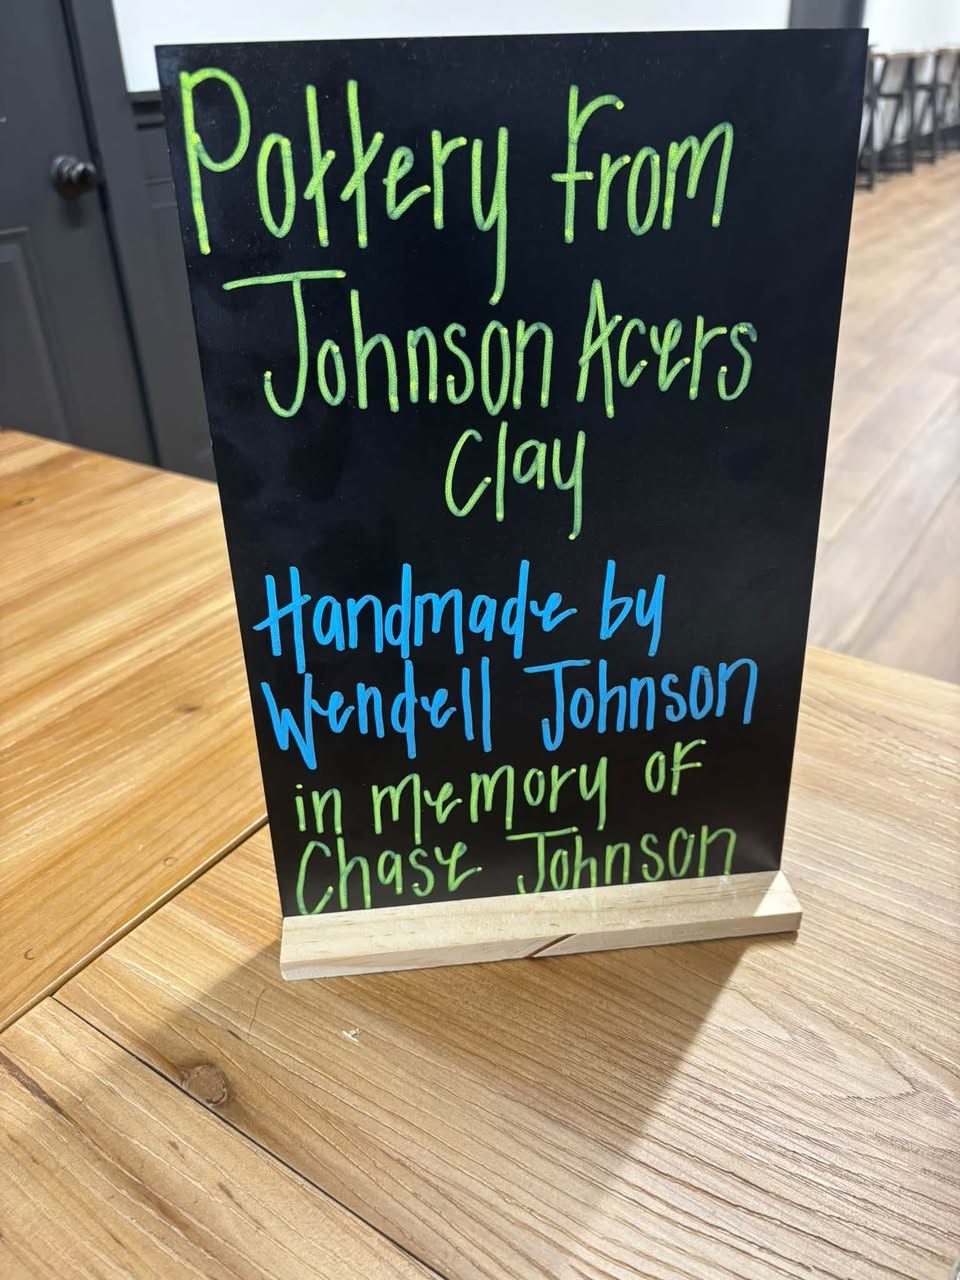 Pottery from
Johnson Acers
Clay
Handmade by
Wendell Johnson
in memory of
Chase Johnson